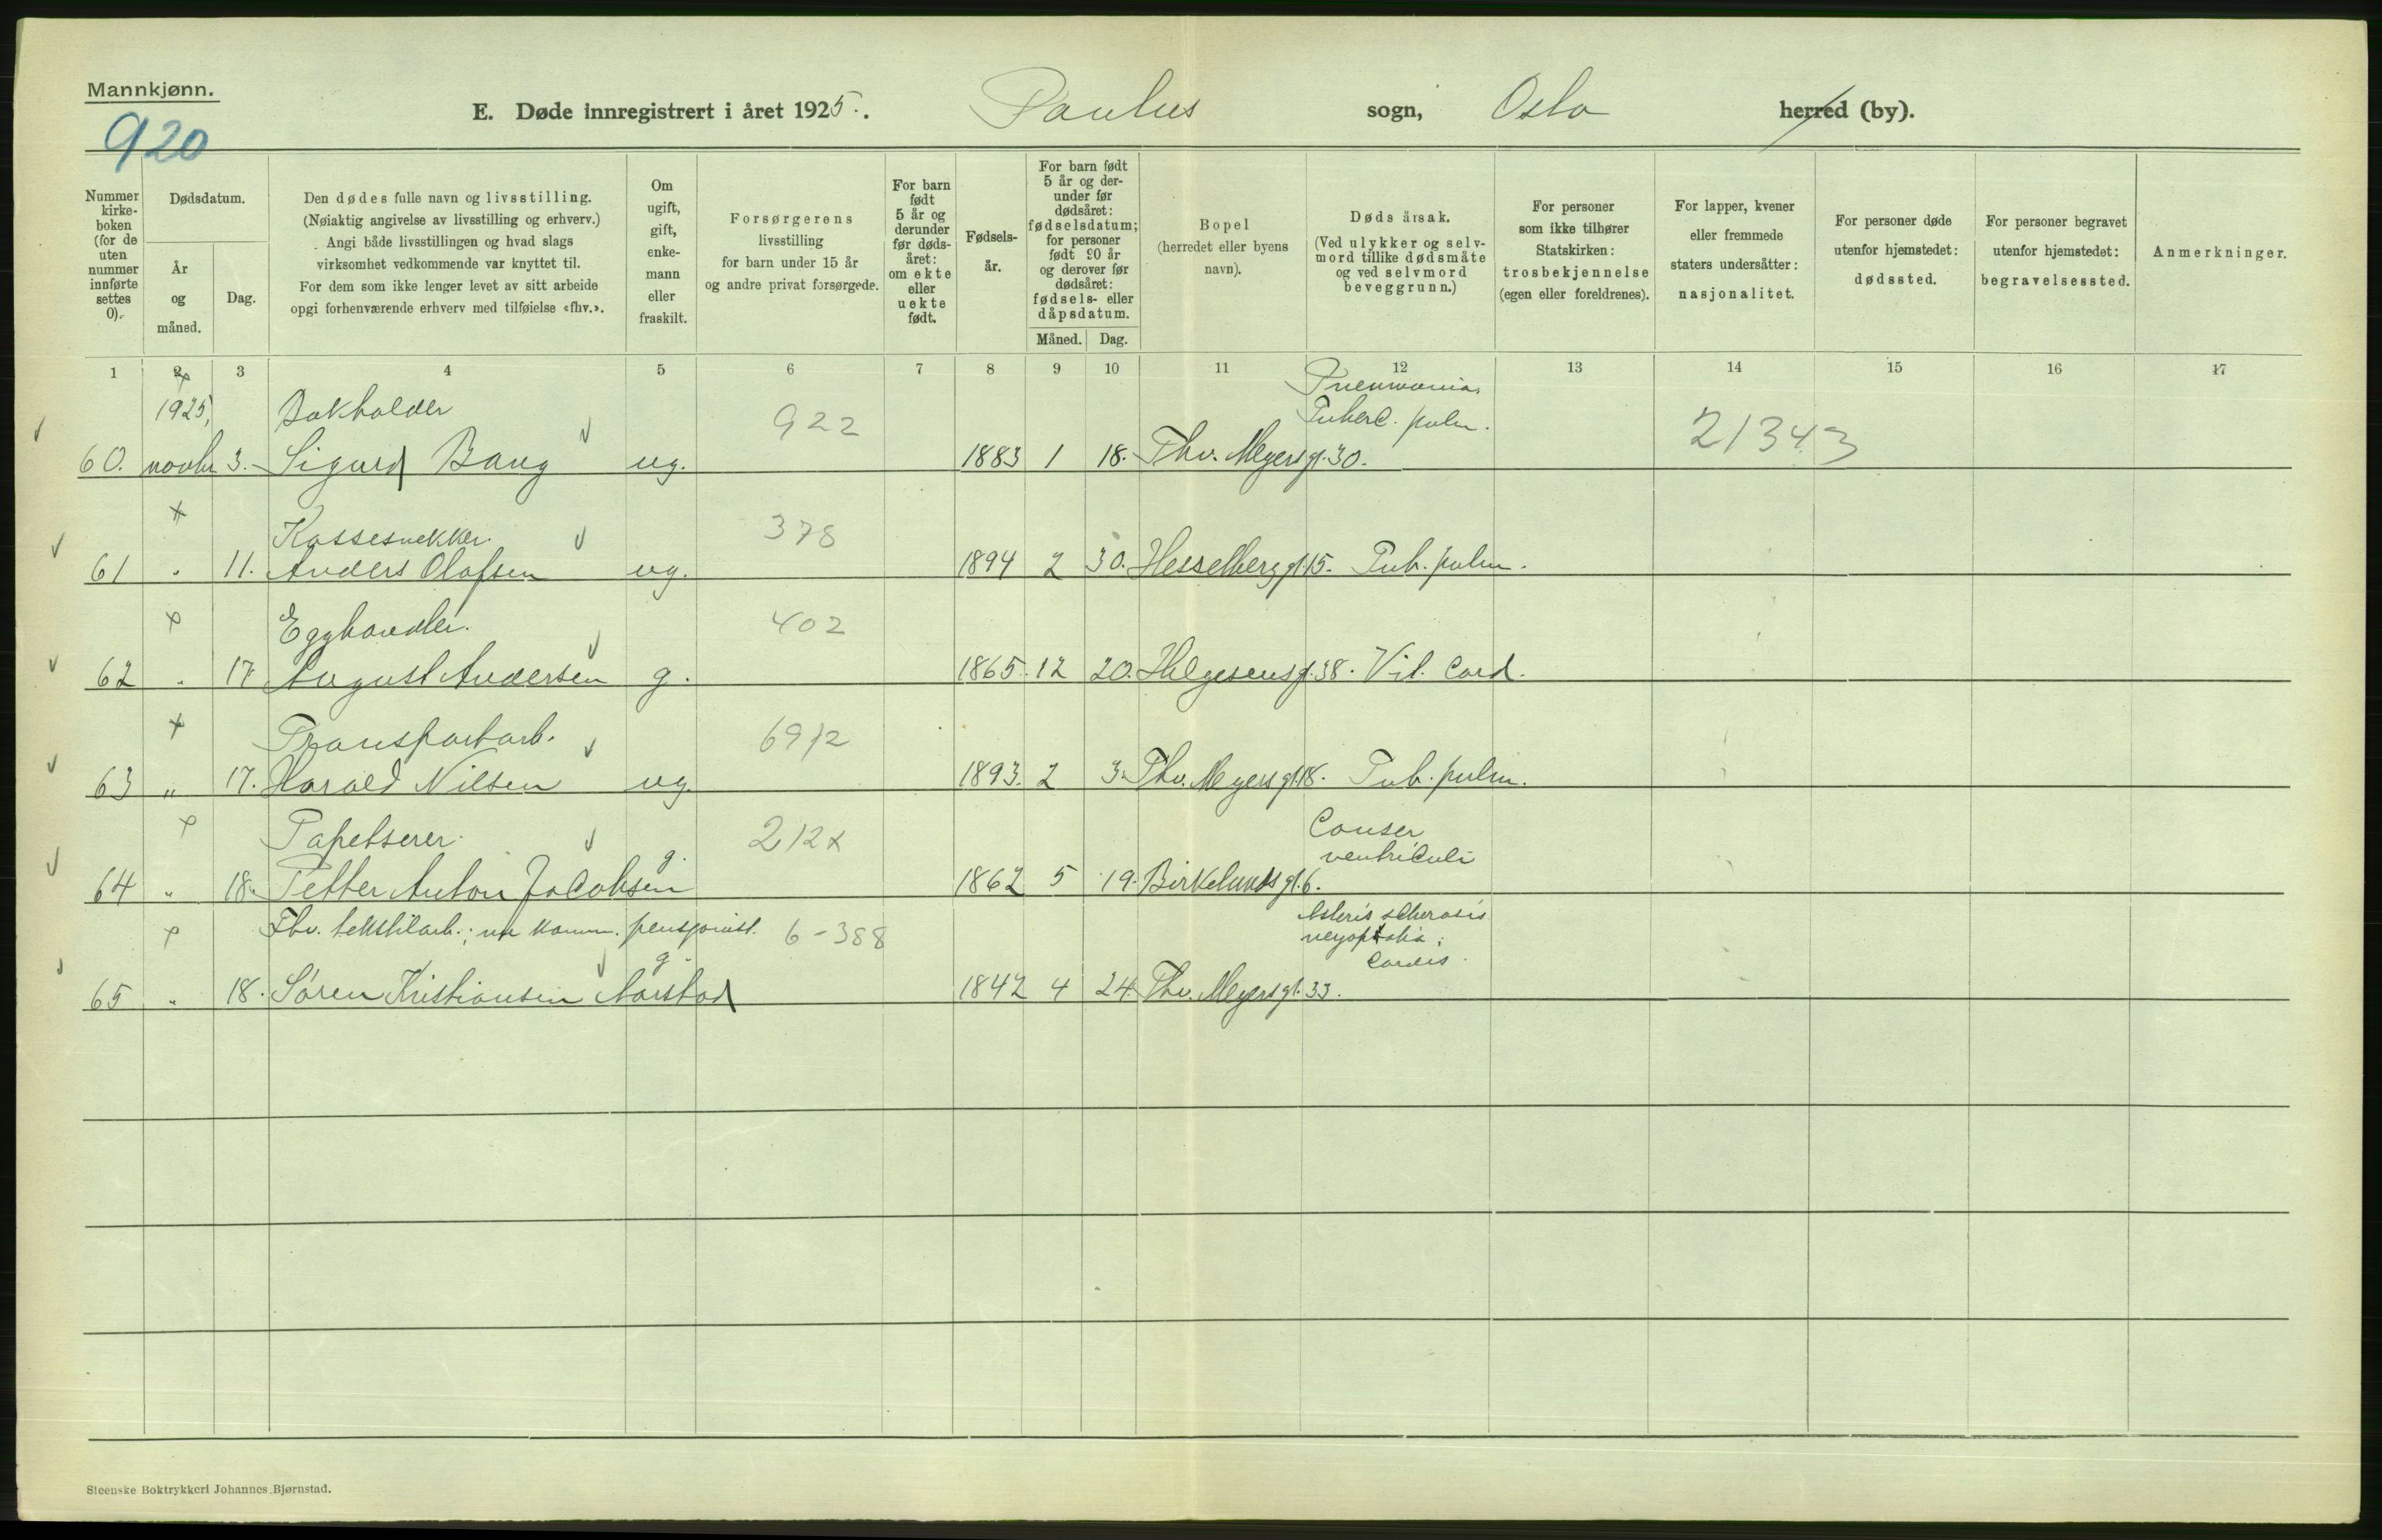 Mannkjønn.
920
E. Døde innregistrert i året 1925. Paulus sogn, Oslo herred (by).
Nummer kirke-boken (for de uten nummer innførte settes 0).
Dødsdatum.
År og måned.
Dag.
Den dødes fulle navn og livsstilling.
(Nøiaktig angivelse av livsstilling og erhverv.)
Angi både livsstillingen og hvad slags
virksomhet vedkommende var knyttet til.
For dem som ikke lenger levet av sitt arbeide
opgi forhenværende erhverv med tilføielse «fhv.».
Om ugift, gift, enke-mann eller fraskilt.
Forsørgerens
livsstilling
for barn under 15 år
og andre privat forsørgede.
For barn født 5 år og derunder før døds-året: om ekte eller uekte født.
Fødsels-år.
For barn født 5 år og der-under før dødsåret: fødselsdatum; for personer født 90 år og derover før dødsåret: fødsels- eller dåpsdatum.
Måned. Dag.
Bopel
(herredet eller byens
navn).
Døds årsak.
(Ved ulykker og selv-
mord tillike dødsmåte
og ved selvmord
beveggrunn.)
For personer
som ikke tilhører
Statskirken:
trosbekjennelse
(egen eller foreldrenes).
For lapper, kvener
eller fremmede
staters undersåtter:
nasjonalitet.
For personer døde
utenfor hjemstedet:
dødssted.
For personer begravet
utenfor hjemstedet:
begravelsessted.
Anmerkninger.
1 2 3 4 5 6 7 8 9 10 11 12 13 14 15 16 17
1925, Bokholder 922 Pneumonia, Tuberc. pulm. 21343
60. novbr 3. Sigurd Bang ug. 1883 1 18. Thv. Meyersgt. 30.
Kassesnekker. 378
61 " 11. Anders Olafsen ug. 1894 2 30. Hesselberggt. 15. Tub. pulm.
Egghandler. 402
62 " 17 August Andersen g. 1865. 12 20. Helgesensg. 38. Vit. Cord.
Transportarb. 69/2
63 " 17. Harald Nilsen ug. 1893. 2 3. Thv. Meyersgt. 18. Tub. pulm.
Tapetserer. 212x Canser ventriculi
64 " 18. Petter Anton Jacobsen g. 1862 5 19. Birkelundsgt. 6.
Fhv. tekstilarb.; nu komm. pensjonist. 6-388
Cordis.
65 " 18. Søren Kristiansen Aarstad g. 1842 4 24. Thv. Meyersgt. 33.
Steenske Boktrykkeri Johannes Bjørnstad.